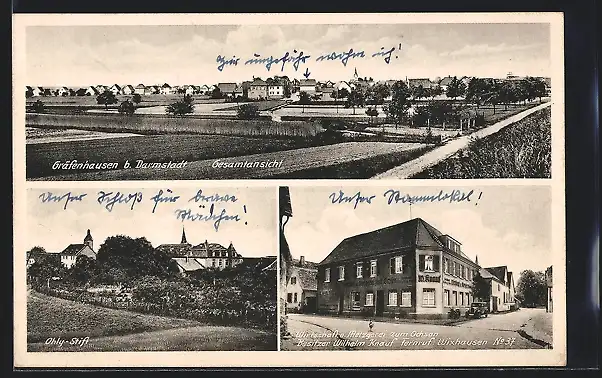 Hier ungefähr wohne ich!
Gräfenhausen b. Darmstadt Gesamtansicht
Unser Schloß für brave
Mädchen!
Unser Stammlokal!
W. Knauf
Ohly-Stift
Wirtschaft u. Metzgerei zum Ochsen
Besitzer Wilhelm Knauf Fernruf Wixhausen No 37